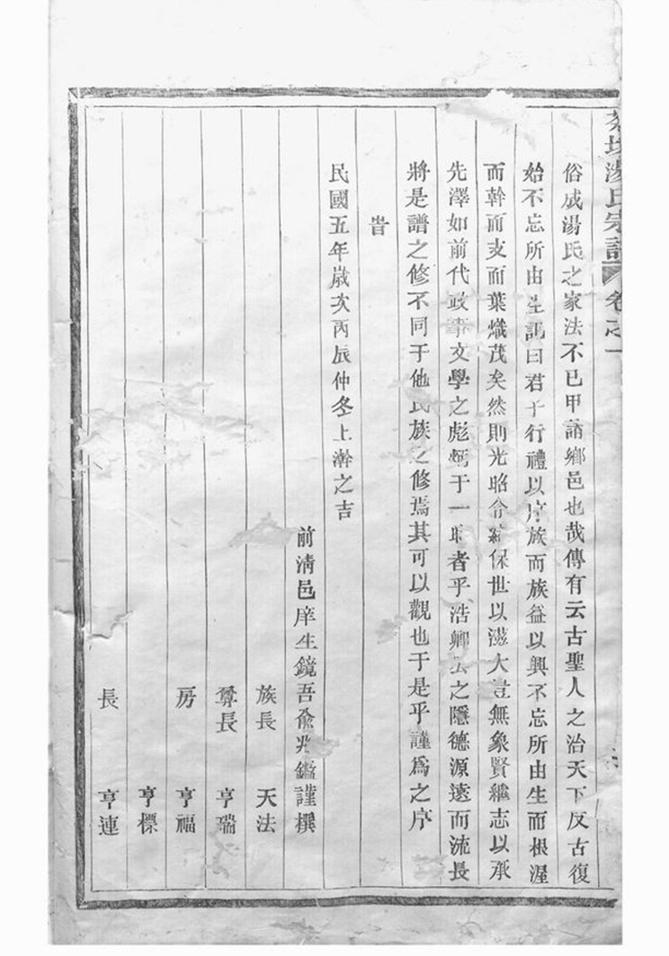 湯氏宗譜 卷之一
俗成湯氏之家法不已甲諸鄉邑也哉傳有云古聖人之治天下反古復
始不忘所由生記曰君子行禮以序族而族益以興不忘所由生而根渥
而幹而支而葉熾茂矣然則光昭令緒保世以滋大豈無象賢繼志以承
先澤如前代政事文學之彪炳于一時者乎浩卿公之隱德源遠而流長
將是譜之修不同于他氏族之修焉其可以觀也于是乎謹為之序
旹
民國五年歲次丙辰仲冬上澣之吉
前清邑庠生鏡吾俞兆鑑謹撰
族長 天法
長 亨瑞
房 亨福
亨標
長 亨連